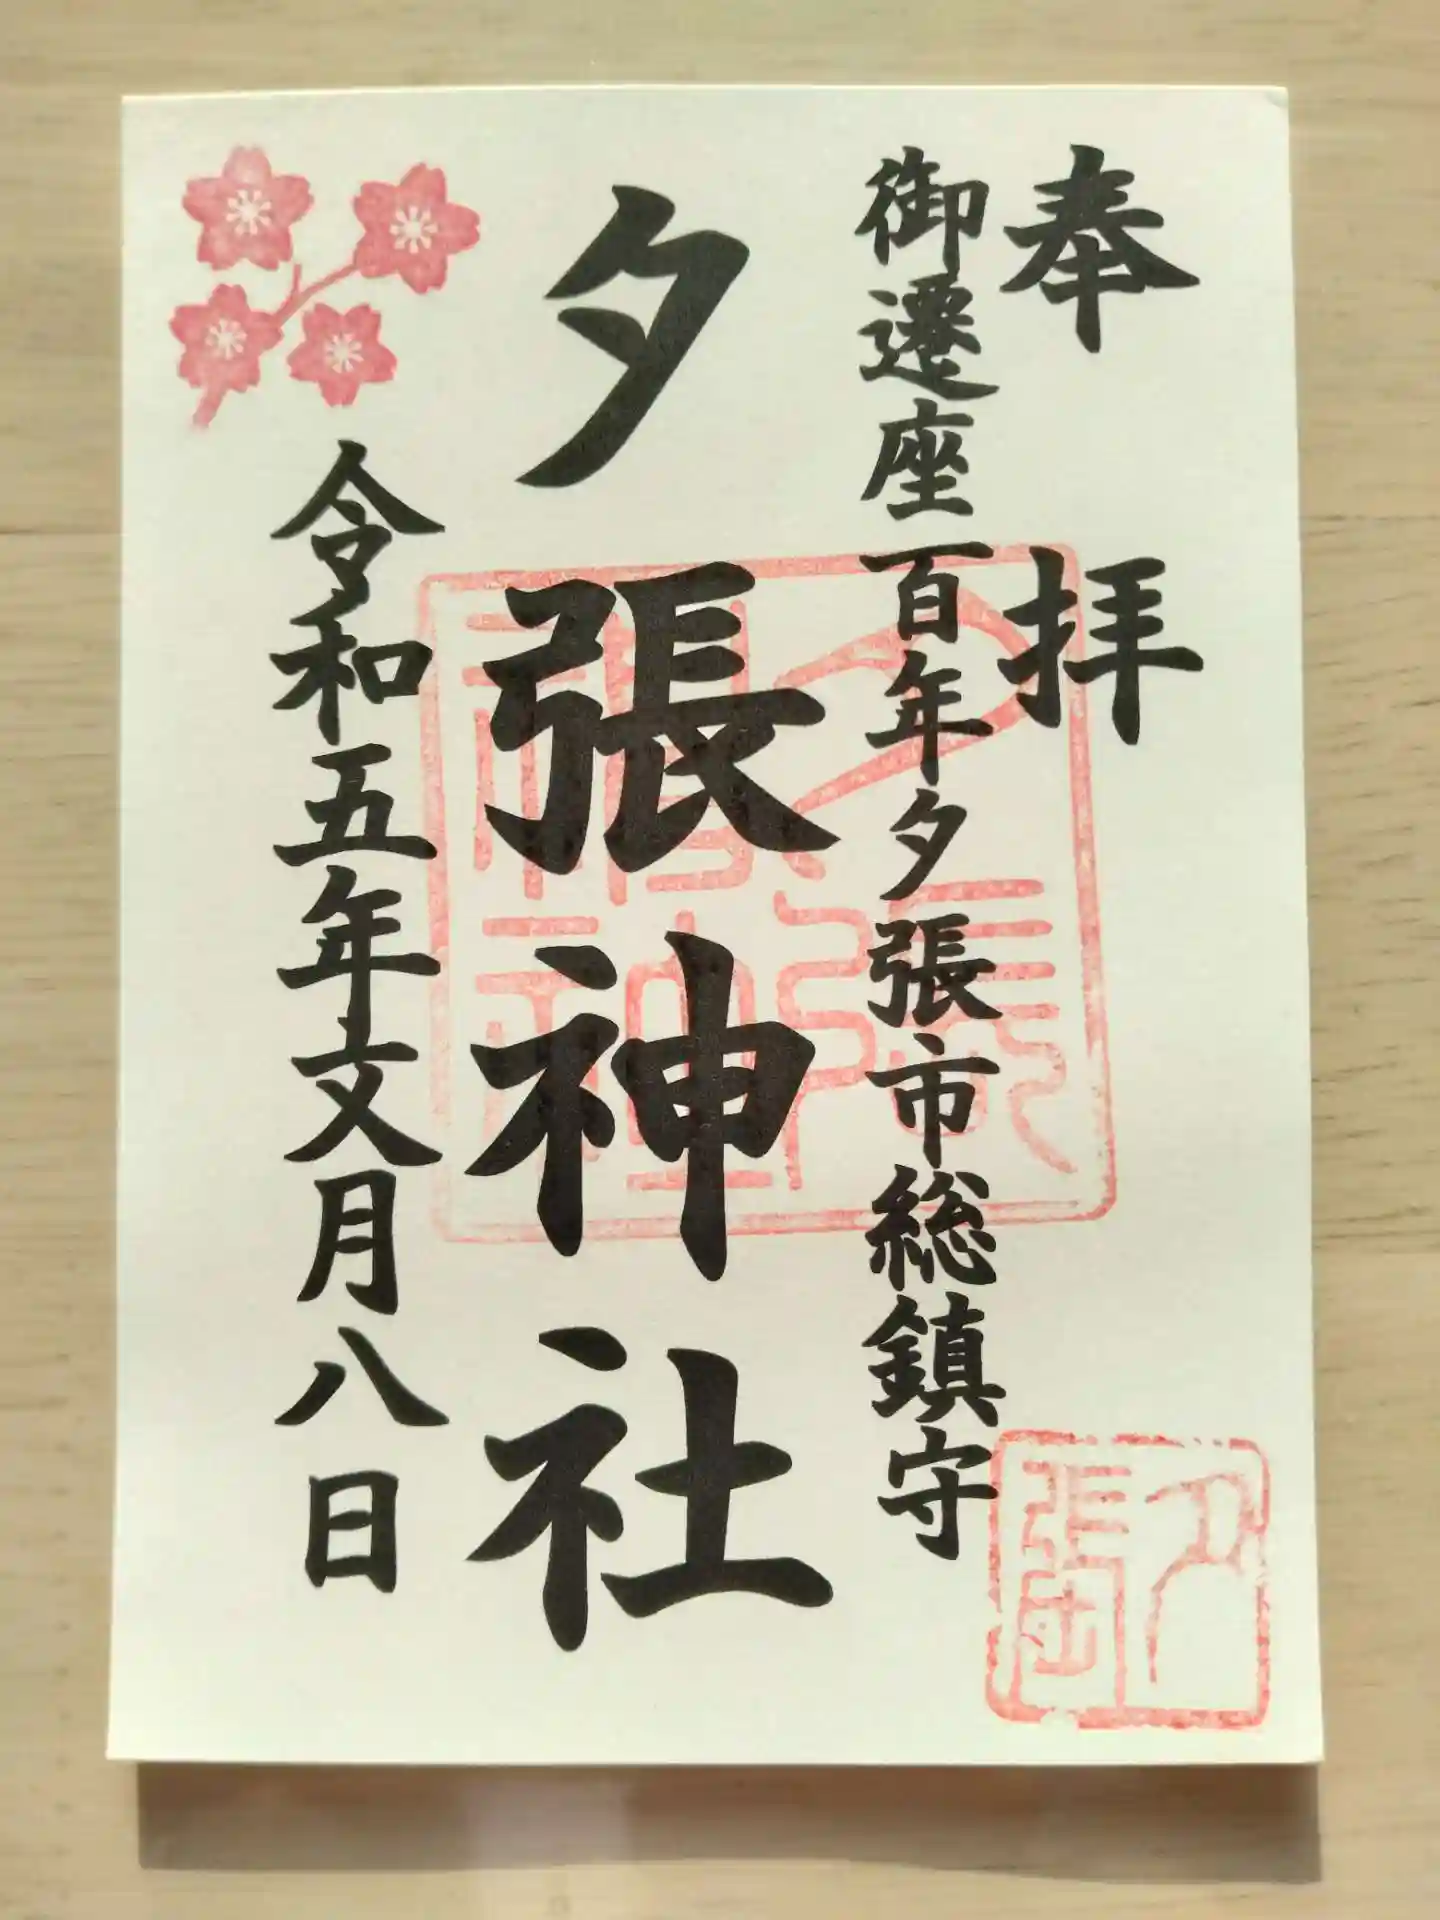 奉拝
御遷座百年夕張市総鎮守
夕張神社
令和五年文月八日
夕張神社